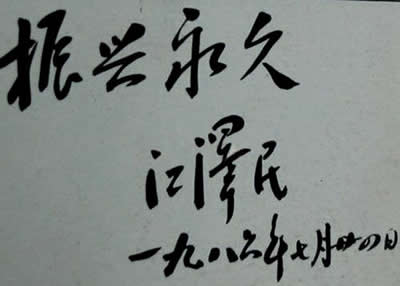 振兴永久
江泽民
一九八六年七月廿四日